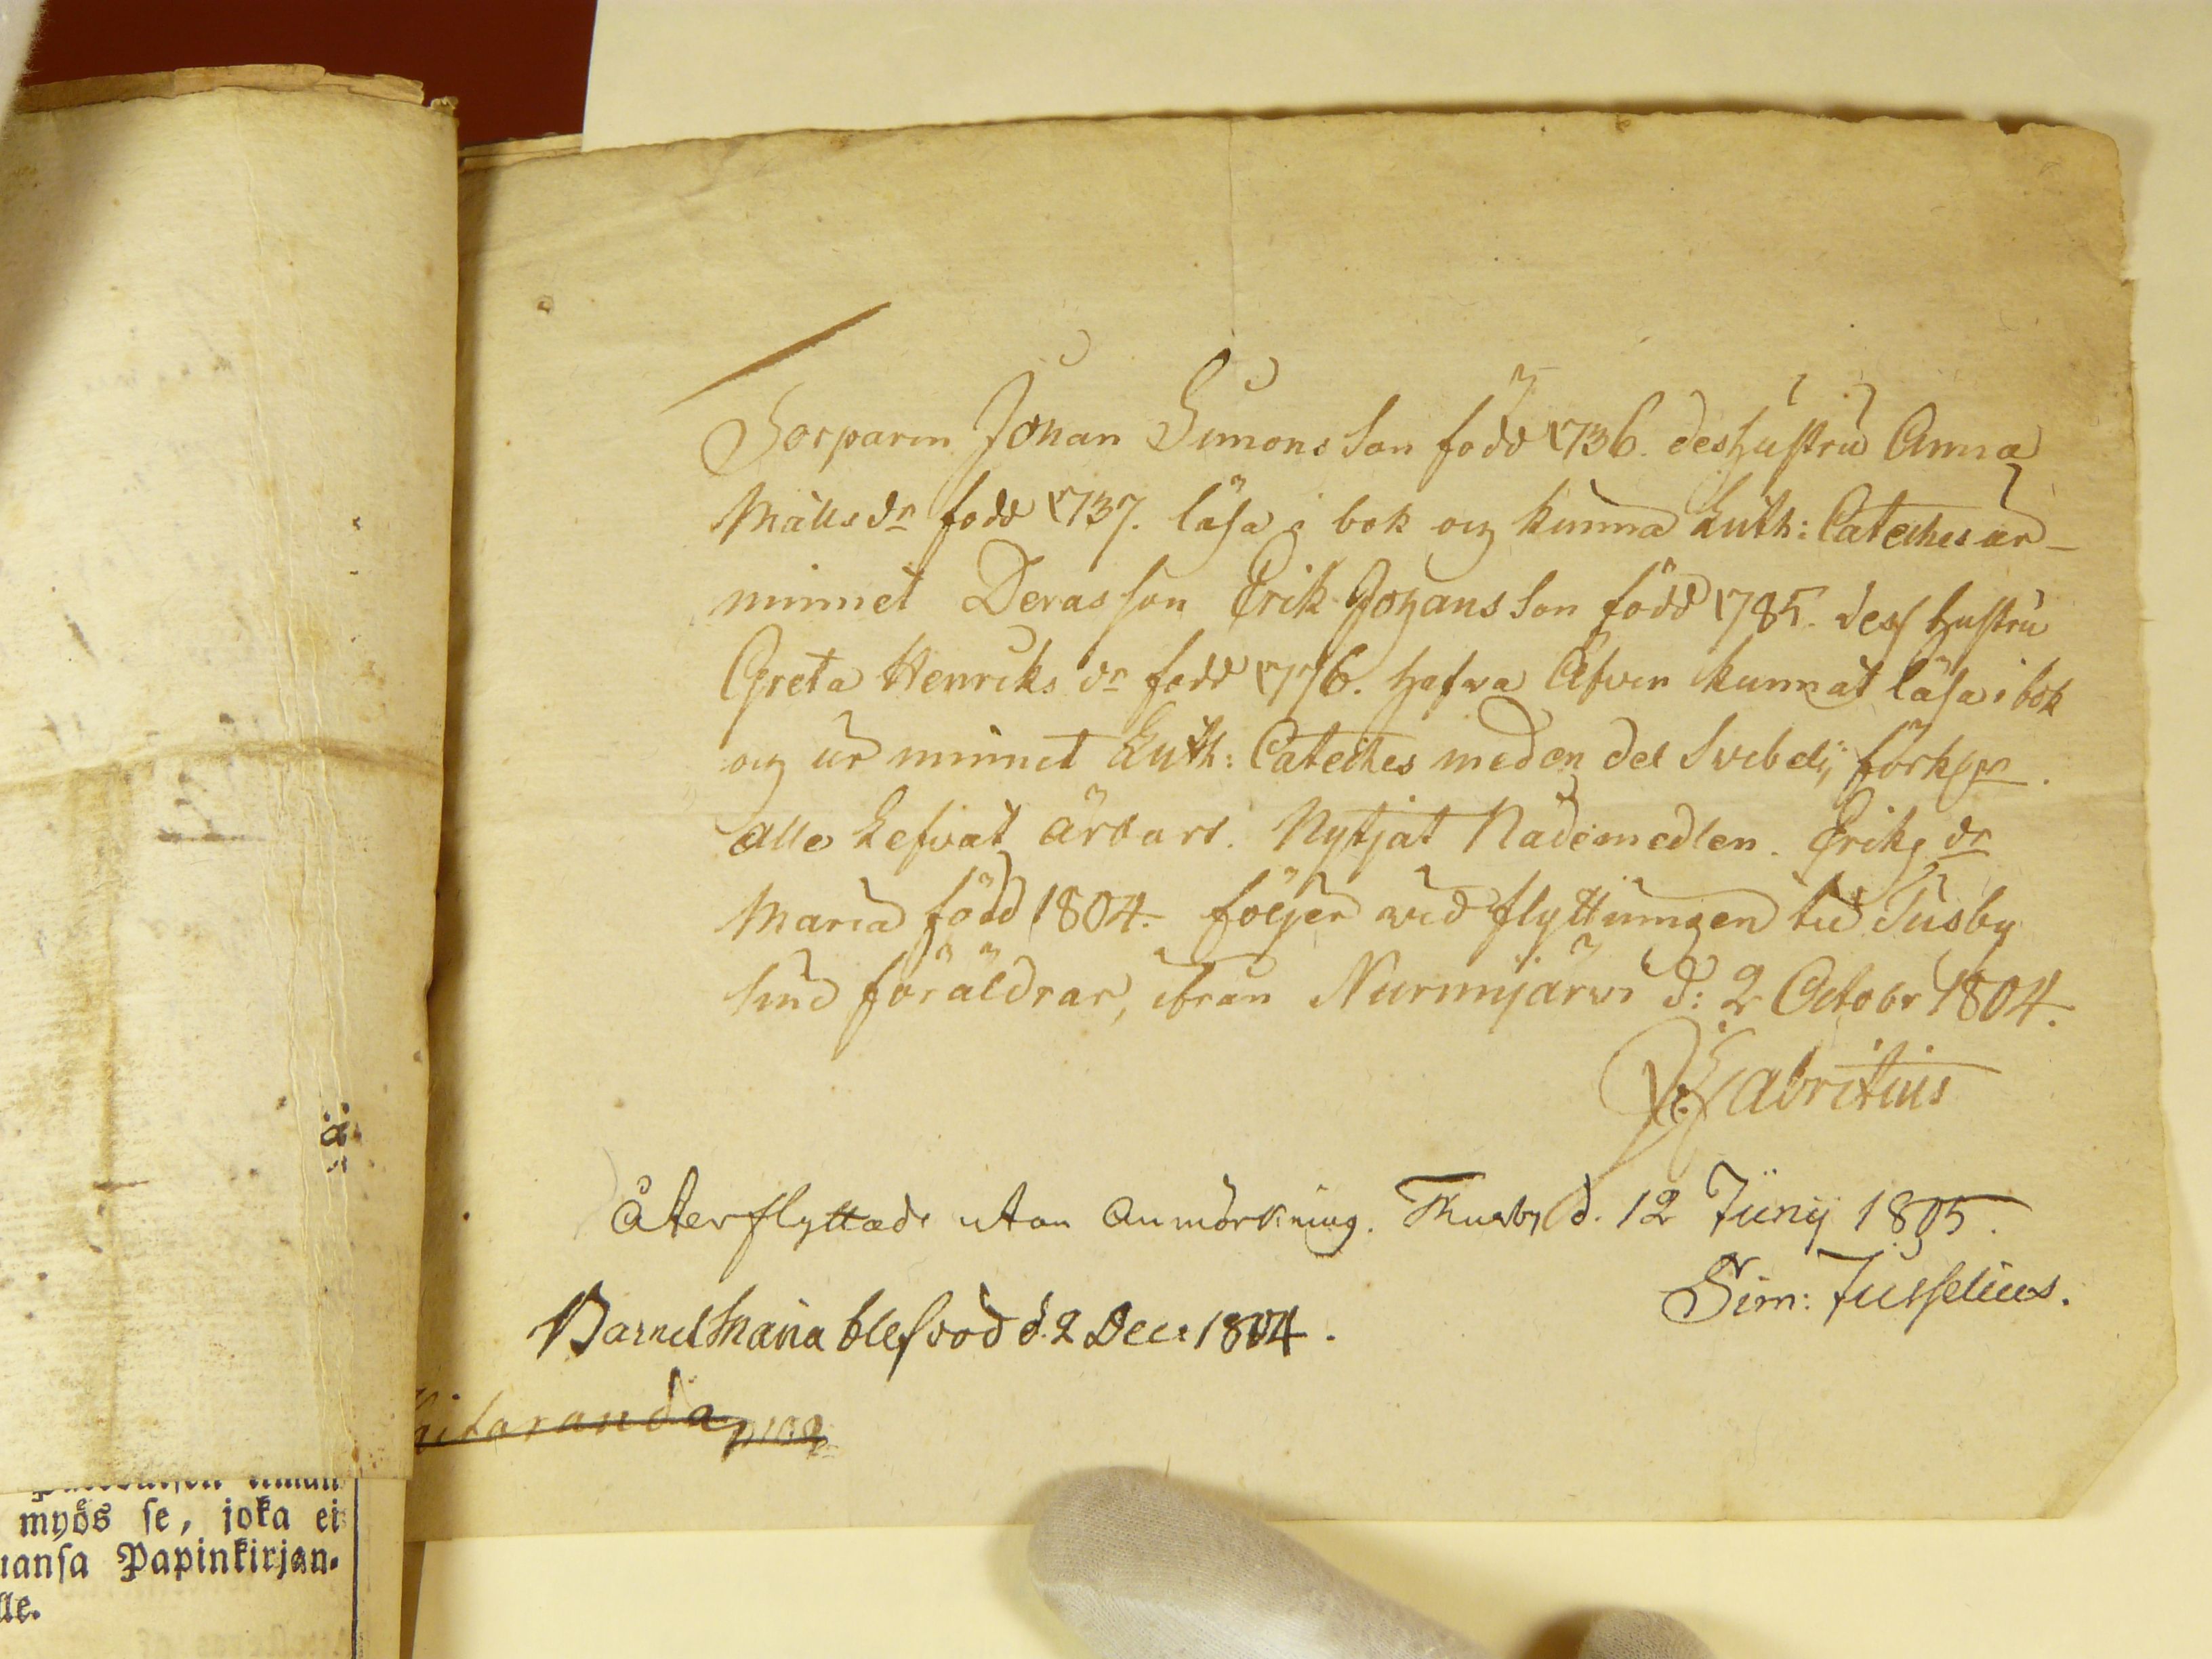 Torparen Johan Simonsson född 1736. deshustru Anna
Mattsdr född 1737. läsa i bok och kunna Luth: Cateches ur
minnet Deras son Erik Johansson född 1785. dess hustru
Greta Henriksdr född 1776. hafva Äfven kunnat läsa i bok
och ur minnet Luth: Cateches med en del Svebelij förkl:gn.
alle Lefvat ärbart. Nytjat Nademedlen. Eriks dr
Maria född 1804. följer wid flyttningen till Tusby
sine föräldrar, ifrån Nurmijärwi d: 2 Octobr 1804.
Fabritius
Återflyttade utan Anmärkning. Thusby d. 12 Junij 1805.
Sim: Jusselius.
Barnet Maria blef död d. 2 Dec: 1804.
myös se, joka ei
Papinkirjan-
lle.